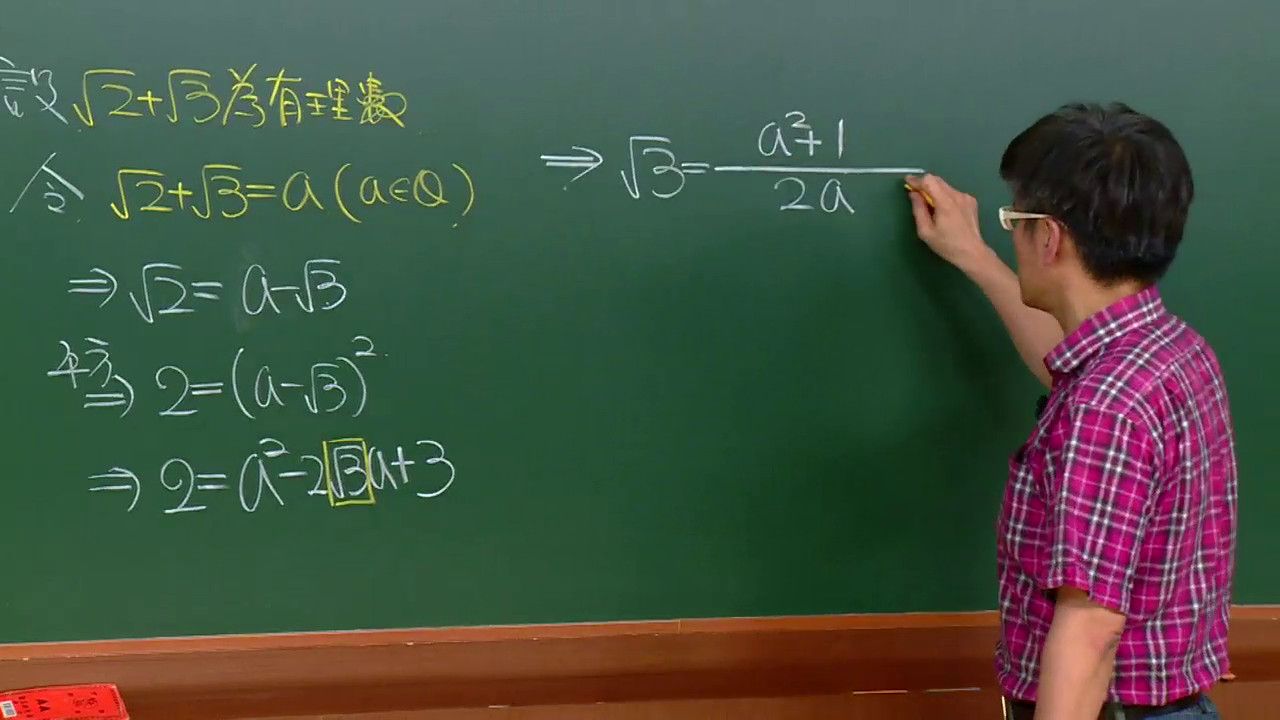 設√2+√3為有理數
令 √2+√3=a(a∈Q)
⇒√2= a-√3
平方
⇒ 2=(a-√3)²
⇒ 2=a²-2√3a+3
⇒ √3= a²+1
2a
AA